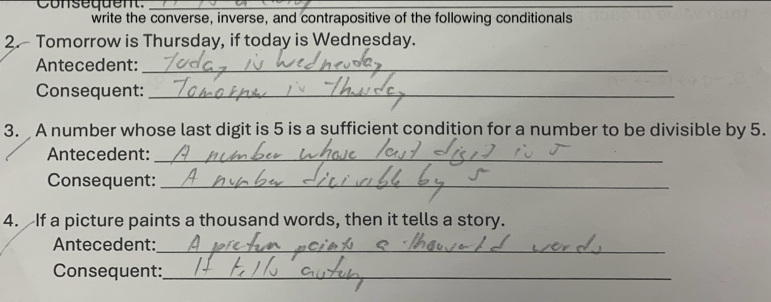 Consequent:
write the converse, inverse, and contrapositive of the following conditionals
2. Tomorrow is Thursday, if today is Wednesday.
Antecedent: Today is Wednesday
Consequent: Tomorrow is Thursday
3. A number whose last digit is 5 is a sufficient condition for a number to be divisible by 5.
Antecedent: A number whose last digit is 5
Consequent: A number divisible by 5
4. If a picture paints a thousand words, then it tells a story.
Antecedent: A picture paints a thousand words
Consequent: It tells